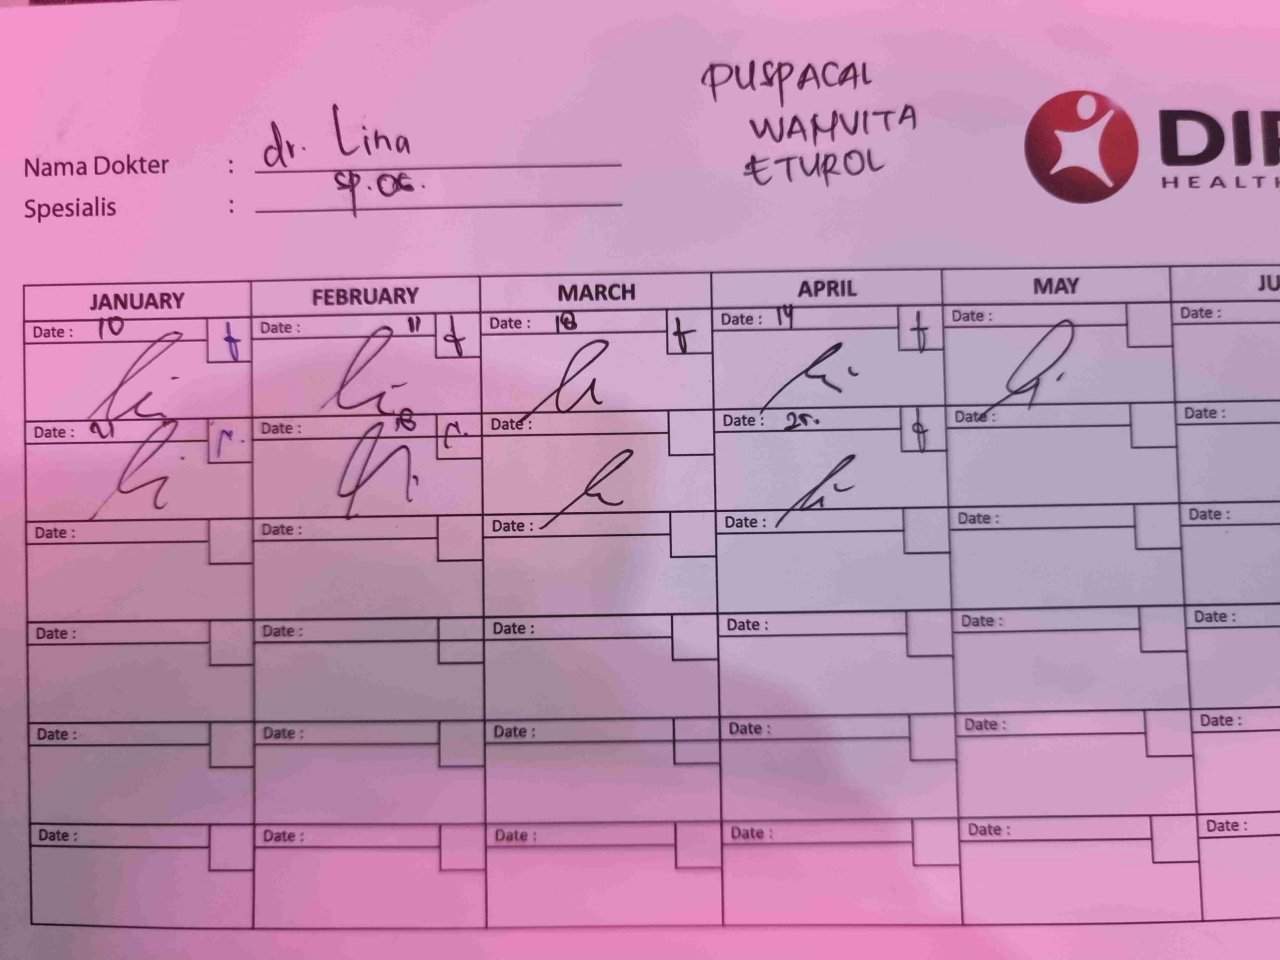 PUSPACAL
WAMVITA
ETUROL
Nama Dokter : dr. Lina
Spesialis : sp.OG.
DI
HEALTH
JANUARY FEBRUARY MARCH APRIL MAY JU
Date : 10 Date : 11 Date : 18 Date : 14 Date : Date :
Date : 21 Date : 18 Date : Date : 25. Date : Date :
Date : Date : Date : Date : Date : Date :
Date : Date : Date : Date : Date : Date :
Date : Date : Date : Date : Date : Date :
Date : Date : Date : Date : Date : Date :